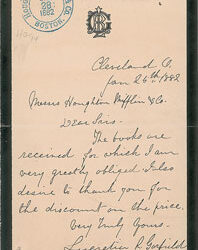 28
1882
BOSTON.
Cleveland O.
Jan 26th 1882
Messrs Houghton Mifflin & Co.
Dear Sirs.
The books are
received for which I am
very greatly obliged I also
desire to thank you for
the discount on the price.
Very Truly Yours.
Lucretia R. Garfield